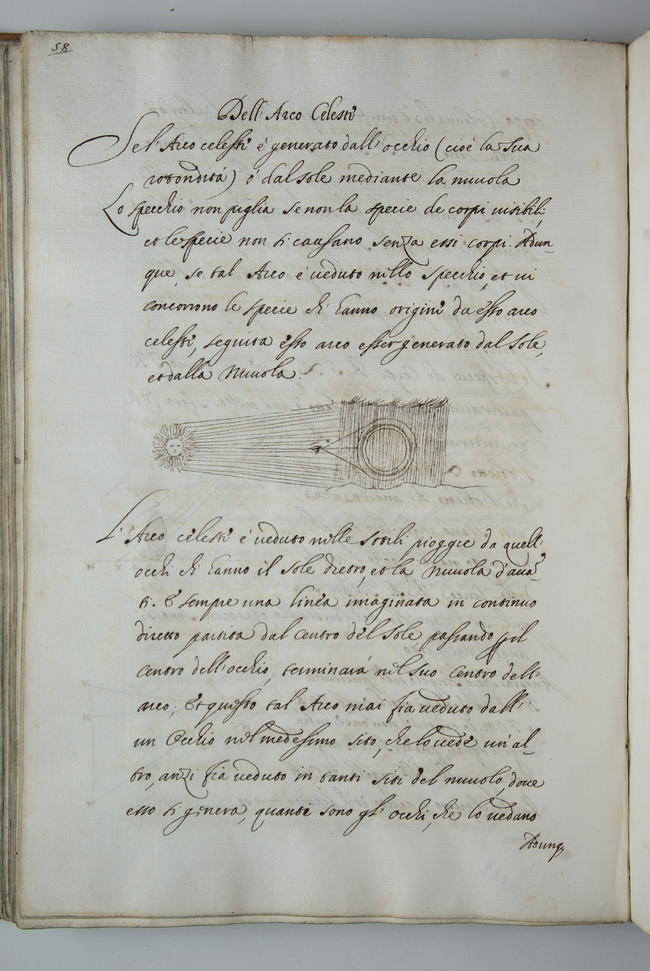 58
Dell'Arco Celeste
Se l'Arco celeste è generato dall'occhio (cioè la sua
rotondità) ò dal sole mediante la nuuola
Lo specchio non piglia se non la specie de corpi uisibili,
et le specie non si causano senza essi corpi. Adun-
que, se tal Arco è ueduto nello specchio, et ui
concorrono le specie ch'hanno origine da esso arco
celeste, seguita esso arco esser generato dal sole,
et dalla Nuuola.
L'Arco celeste è ueduto nelle sottili pioggie da quell'
occhi ch'hanno il sole dietro, et la Nuuola d'auā-
ti. Et sempre una linea imaginata in continuo
diretto partita dal centro del sole, passando p il
centro dell'occhio, terminarà nel suo centro dell'
arco; Et questo tal Arco mai fia ueduto dall'
un Occhio nel medesimo sito, che lo uede un'al-
tro, anzi fia ueduto in tanti siti del nuuolo, doue
esso si genera, quanti sono gl'occhi, che lo uedano
Adunq